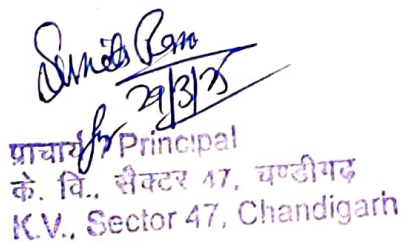 Sunita Ram
29/3/25
प्राचार्य for / Principal
के. वि., सैक्टर 47, चण्डीगढ़
K.V., Sector 47, Chandigarh